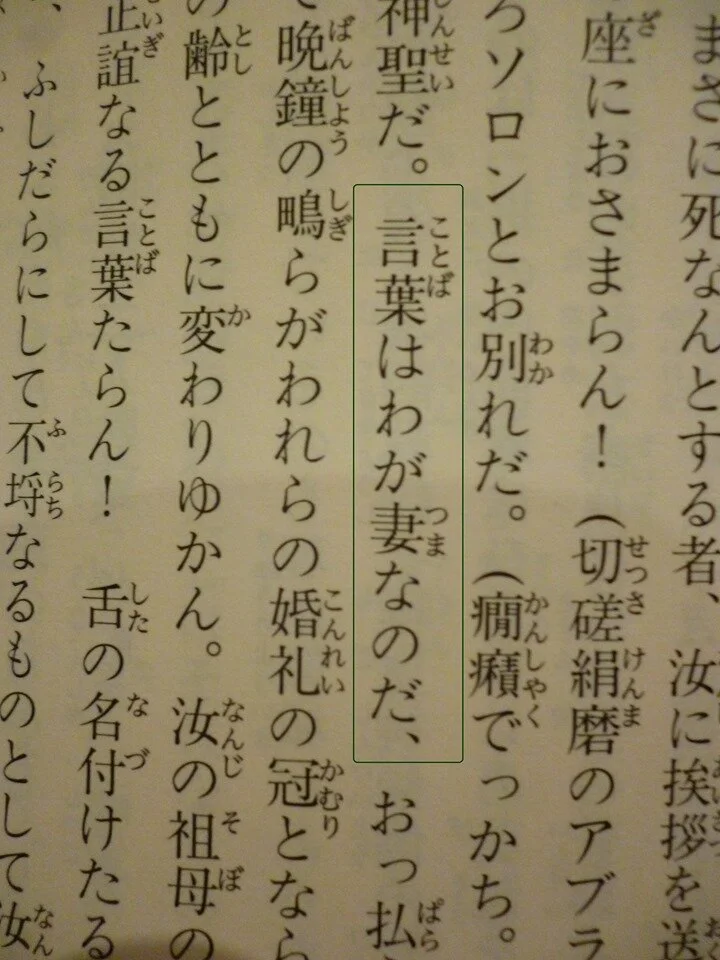 まさに死なんとする者、汝に挨拶を送
座におさまらん！（切磋絹磨のアブラ
ろソロンとお別れだ。（癇癪でっかち。
神聖だ。言葉はわが妻なのだ、おっ払
て晩鐘の鴫らがわれらの婚礼の冠となら
の齢とともに変わりゆかん。汝の祖母の
正誼なる言葉たらん！舌の名付けたる
、ふしだらにして不埒なるものとして汝